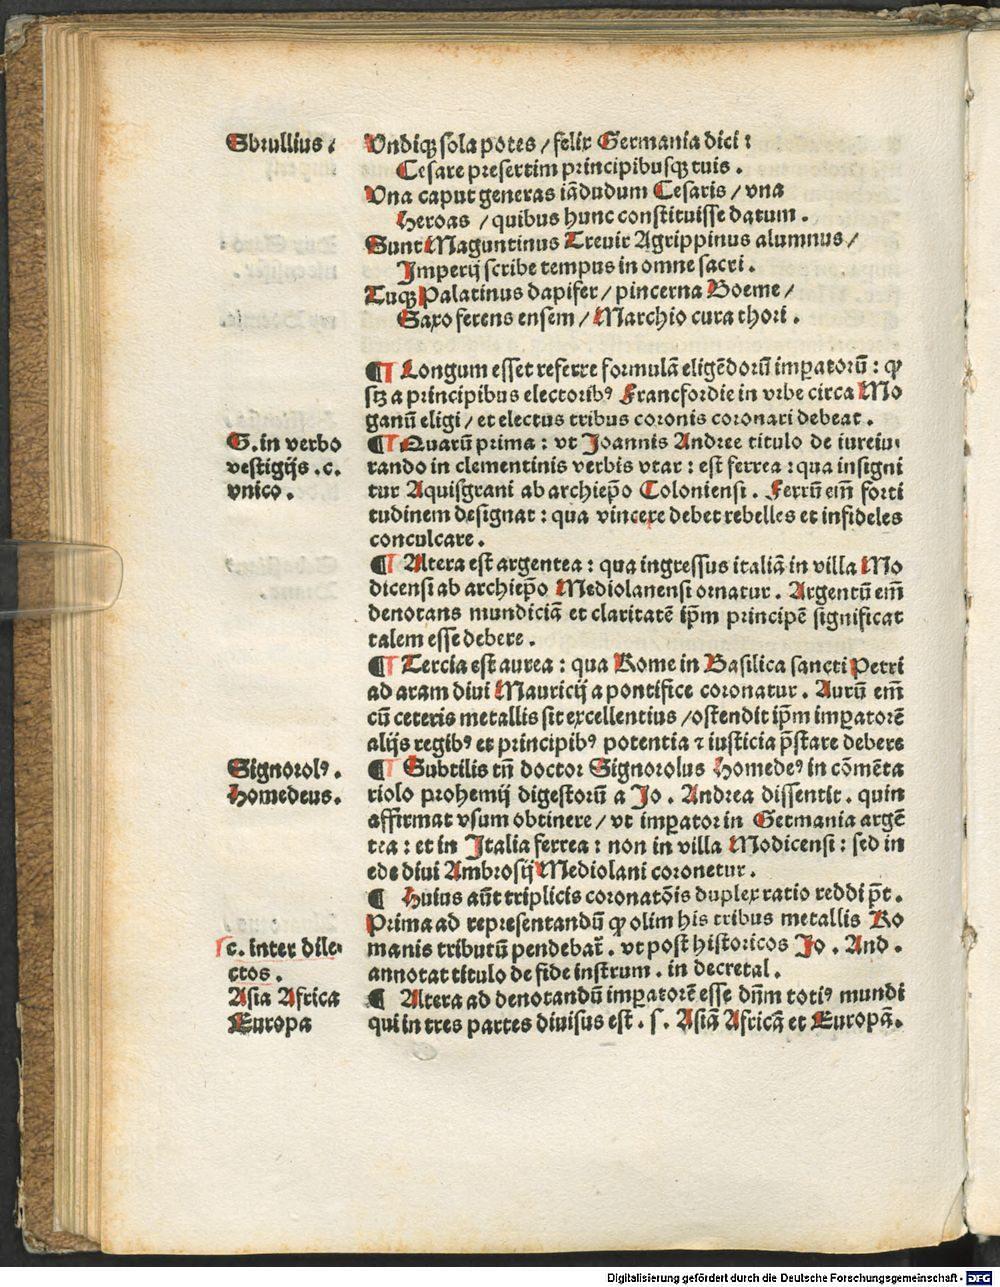 Sbrullius.
Vndiqꝫ sola potes / felix Germania dici :
Cesare presertim principibusqꝫ tuis .
Vna caput generas iādudum Cesaris / vna
Heroas / quibus hunc constituisse datum .
Sunt Maguntinus Treuir Agrippinus alumnus /
Imperij scribe tempus in omne sacri .
Tuqꝫ Palatinus dapifer / pincerna Boeme /
Saxo ferens ensem / Marchio cura thori .
¶ Longum esset referre formulā eligēdorū imꝑatorū : ꝙ
sꝫ a principibus electoribꝰ Francfordie in vrbe circa Mo
ganū eligi / et electus tribus coronis coronari debeat .
G. in verbo
vestigijs .c.
vnico .
¶ Quarū prima : vt Joannis Andree titulo de iureiu⸗
rando in clementinis verbis vtar : est ferrea : qua insigni
tur Aquisgrani ab archiep̄o Coloniensi . Ferrū em̄ forti
tudinem designat : qua vincere debet rebelles et infideles
conculcare .
¶ Altera est argentea : qua ingressus italiā in villa Mo
dicensi ab archiep̄o Mediolanensi ornatur . Argentū em̄
denotans mundiciā et claritatē ip̄m principē significat
talem esse debere .
¶ Tercia est aurea : qua Rome in Basilica sancti Petri
ad aram diui Mauricij a pontifice coronatur . Aurū em̄
cū ceteris metallis sit excellentius / ostendit ip̄m imꝑatorē
alijs regibꝰ et principibꝰ potentia ⁊ iusticia p̄stare debere
Signorolꝰ .
Homedeus.
¶ Subtilis tn̄ doctor Signorolus Homedeꝰ in cōmēta
riolo prohemij digestorū a Jo . Andrea dissentit . quin
affirmat vsum obtinere / vt imꝑator in Germania argē
tea : et in Italia ferrea : non in villa Modicensi : sed in
ede diui Ambrosij Mediolani coronetur .
¶ Huius aūt triplicis coronatōis duplex ratio reddi p̄t .
Prima ad representandū ꝙ olim his tribus metallis Ro
c. inter dile⸗
ctos .
manis tributū pendebat̄ . vt post historicos Jo . And .
annotat titulo de fide instrum . in decretal .
Asia Africa
Europa
¶ Altera ad denotandū imꝑatorē esse dn̄m totiꝰ mundi
qui in tres partes diuisus est . s . Asiā Africā et Europā .
Digitalisierung gefördert durch die Deutsche Forschungsgemeinschaft - DFG